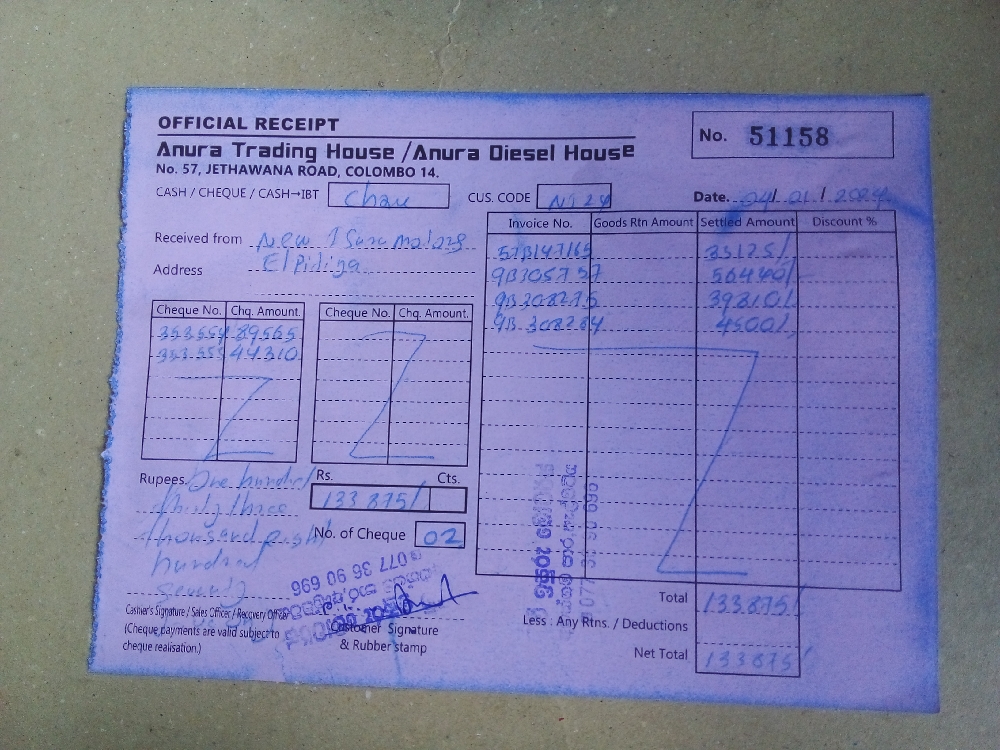 OFFICIAL RECEIPT
No. 51158
Anura Trading House / Anura Diesel House
No. 57, JETHAWANA ROAD, COLOMBO 14.
CASH / CHEQUE / CASH→IBT
CUS. CODE
Date. 04/01/2024
Received from New
Address Elpitiya
Cheque No. Chq. Amount.
353554 89565
353555 44310
Cheque No. Chq. Amount.
Invoice No. Goods Rtn Amount Settled Amount Discount %
35125/
9B305757 56440/
9B308275 39810/
9B 308284 4500/
Rupees. One hundred
thirty three
thousand eight
hundred
seventy
Rs. Cts.
133 875/
No. of Cheque 02
077 36 90 696
Cashier's Signature / Sales Officer / Recovery Officer
(Cheque payments are valid subject to
cheque realisation.)
Customer Signature
& Rubber stamp
Total 133.875/
Less : Any Rtns. / Deductions
Net Total 133875/